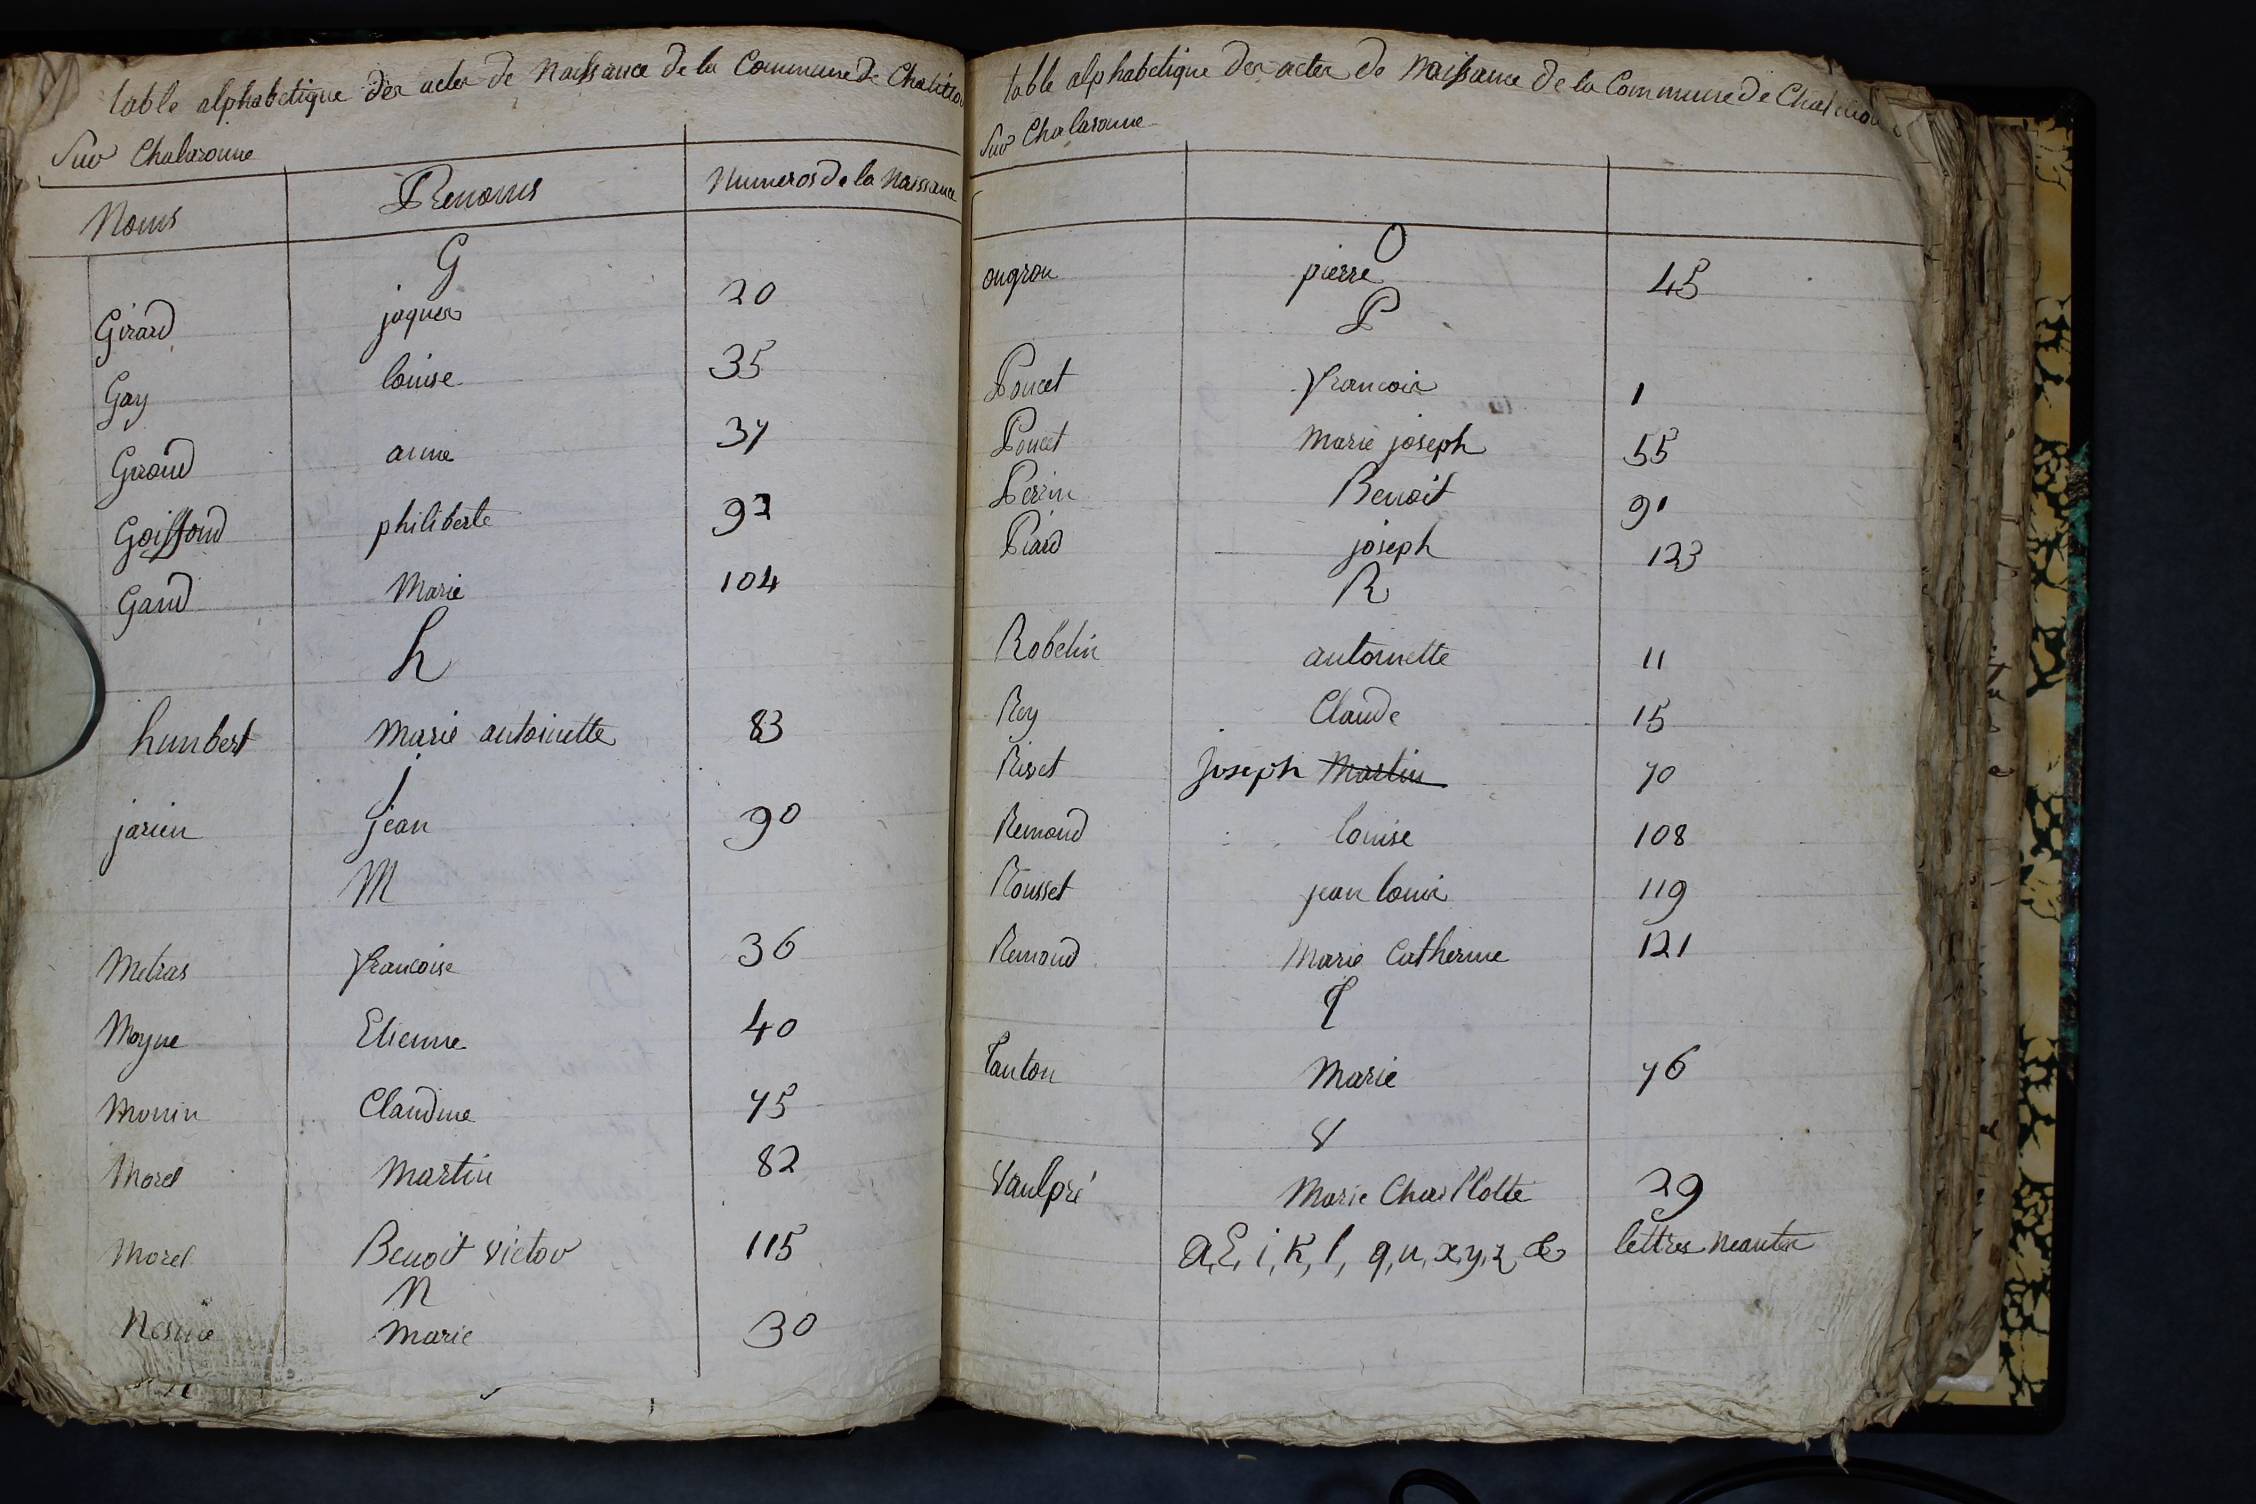 table alphabetique des actes de Naissance de la Commune de Chatillon
sur Chalaronne
Noms Prenoms Numeros de la Naissance
G
Girard jaques 20
Gay louise 35
Giroud anne 37
Goiffond philiberte 92
Gand Marie 104
h
humbert Marie antoinette 83
j
jarien jean 90
M
Metras francoise 36
Moyne Etienne 40
Monin Claudine 75
Morel Martin 82
Morel Benoit victor 115
N
Nesme marie 30
table alphabetique des actes de Naissance de la Commune de Chatillon
sur Chalaronne
O
ougrou pierre 45
P
Poncet francois 1
Poncet Marie joseph 55
Perrin Benoit 91
Piard joseph 123
R
Robelin antoinette 11
Rey Claude 15
Rivet joseph Martin 70
Remond louise 108
Rousset jean louis 119
Remond Marie Catherine 121
T
Tanton Marie 76
V
Vaulpré Marie Charllotte 29
a, E, i, K, l, q, u, x, y, z, & lettres neantes